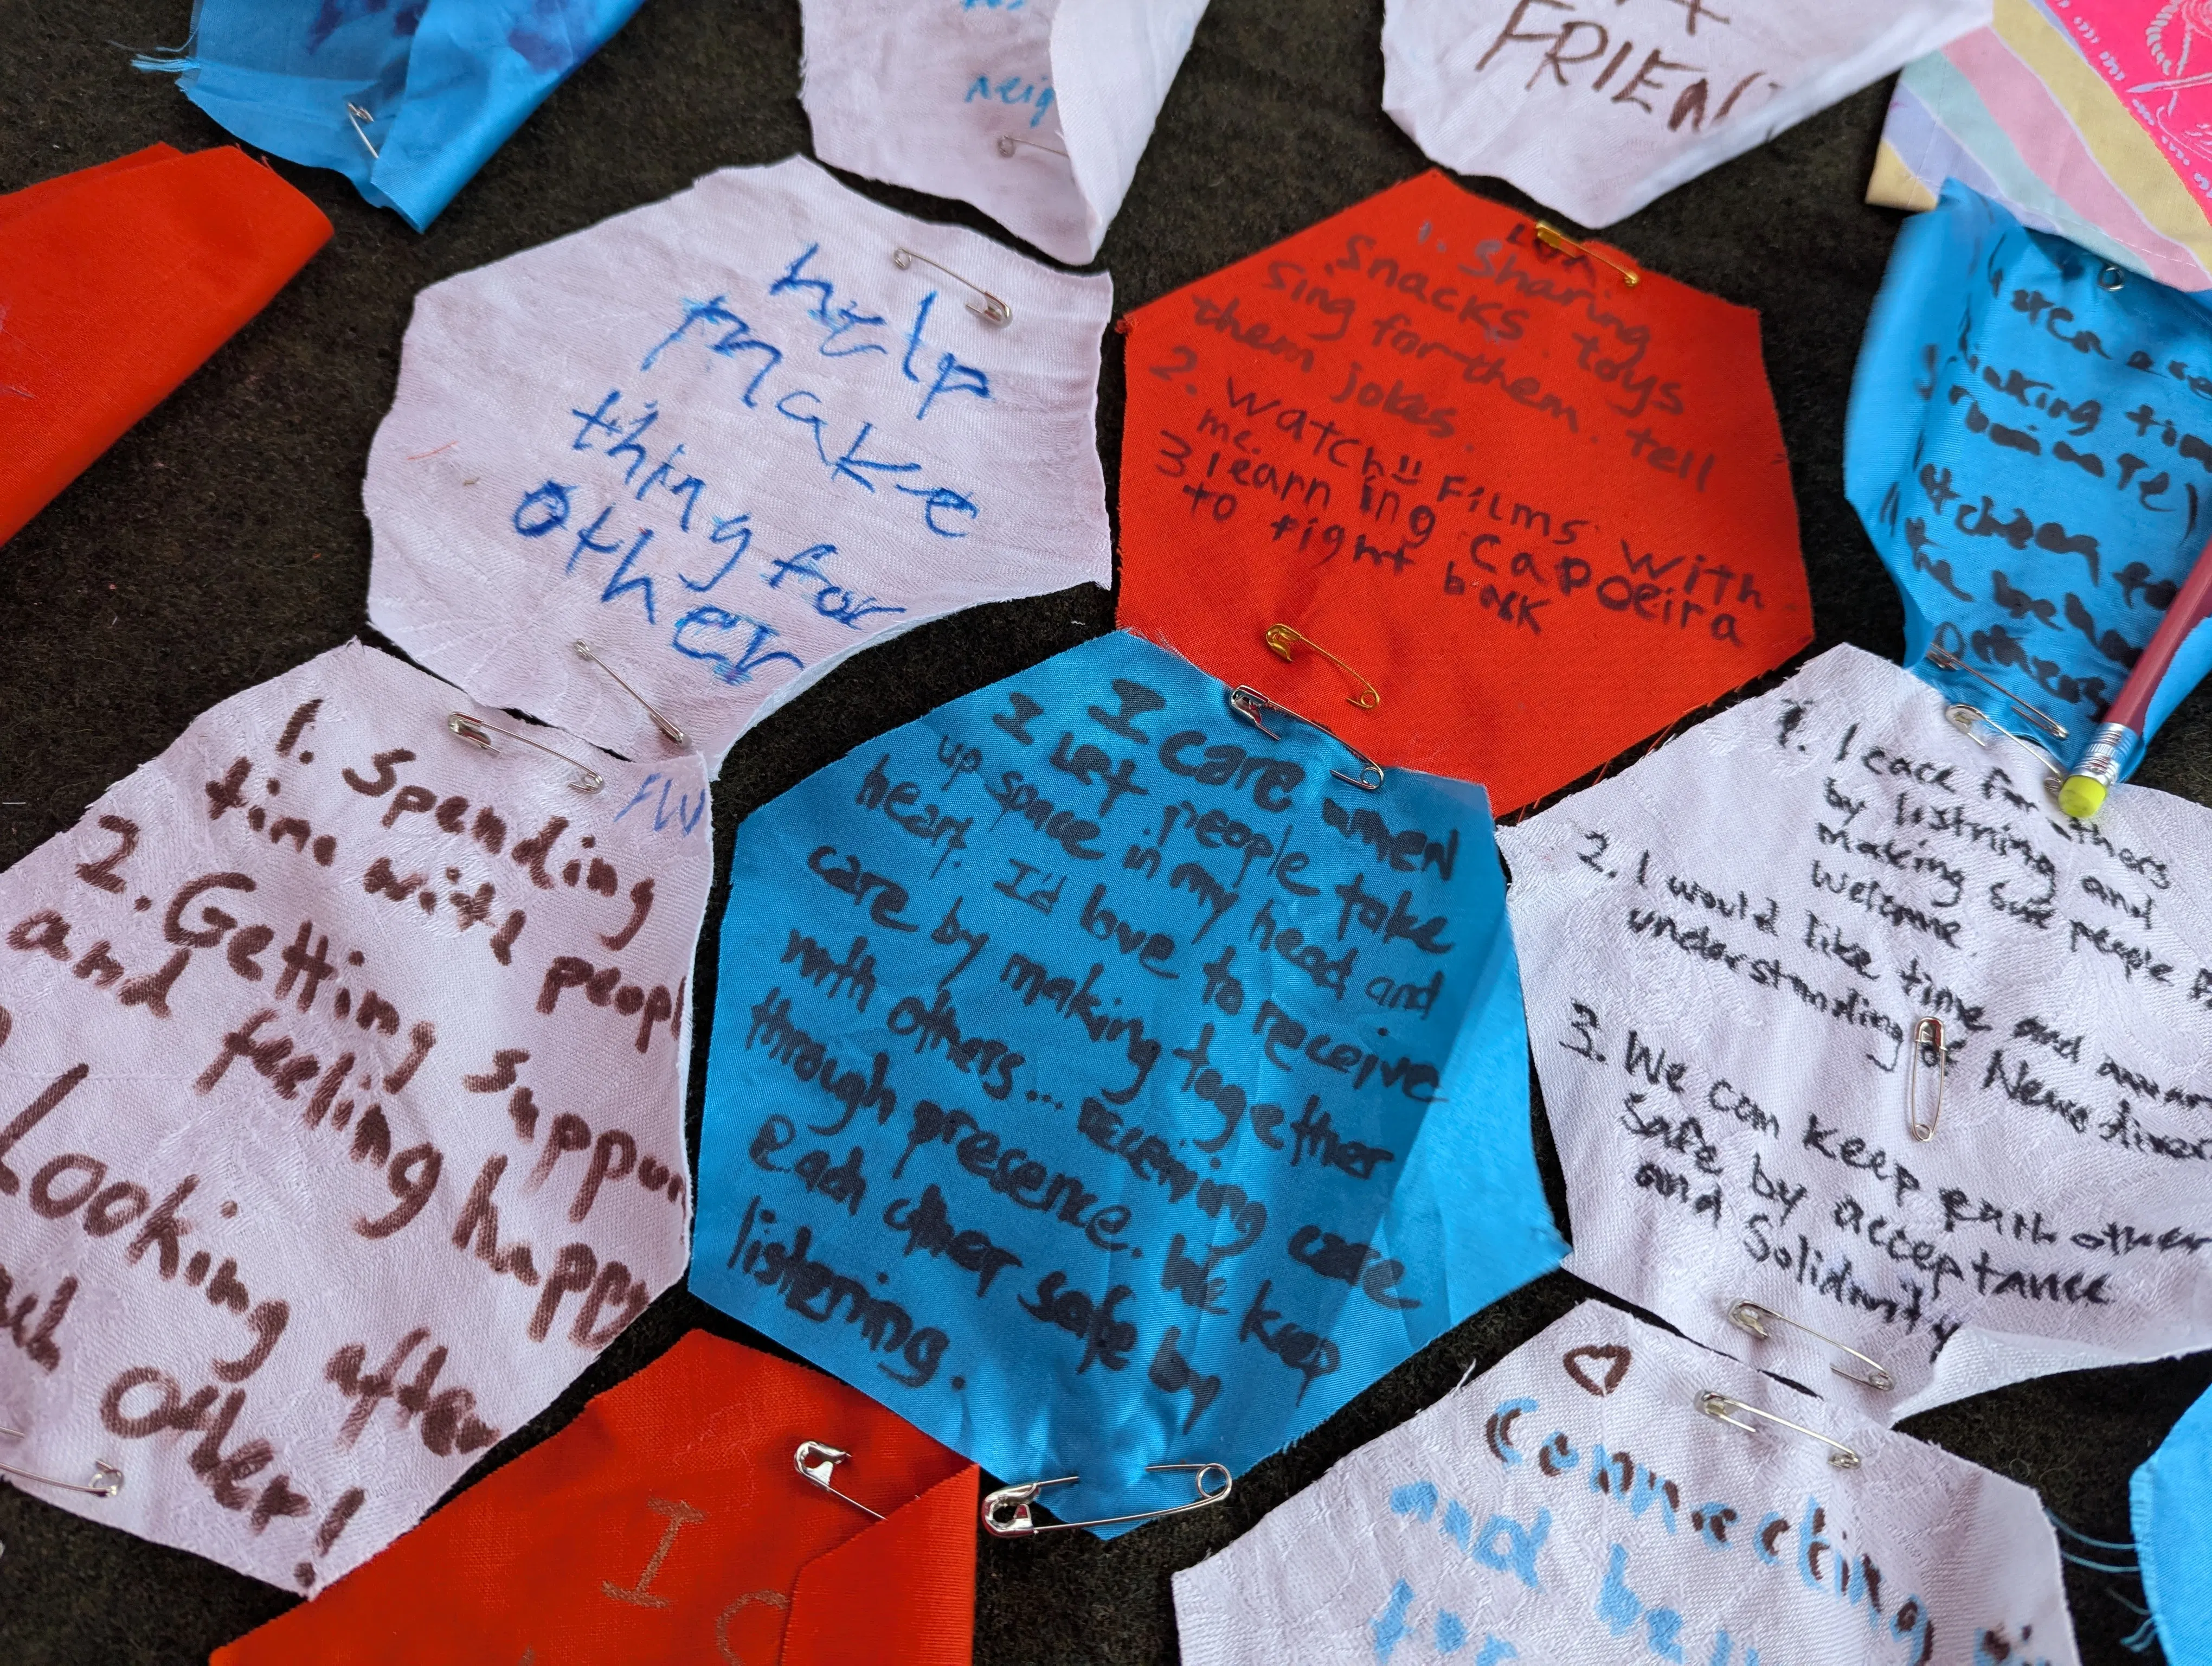 neig
FRIEN
help
make
thing for
other
1. Sharing
Snacks. toys
sing for them. tell
them jokes.
2. Watch!! Films with
me.
3 learning Capoeira
to fight back
thinking time
Others
1. Spending
time with peopl
2. Getting suppor
and feeling happy
Looking after
Other!
I care when
I let people take
up space in my head and
heart. I'd love to receive
care by making together
with others... receiving care
through presence. We keep
each other safe by
listening.
1. I care for others
by listning and
making sure people
welcome
2. I would like time and
understanding of
3. We can keep each other
safe by acceptance
and
I
Connecting
and
for